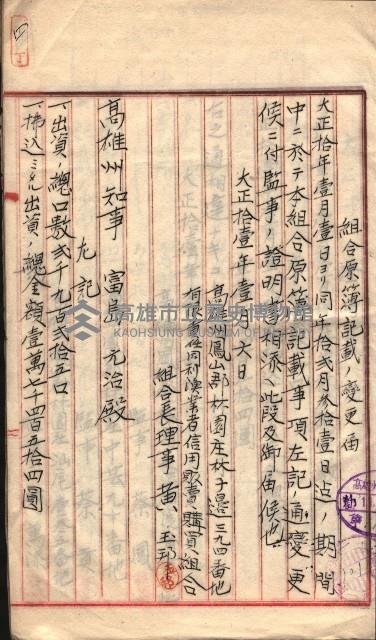 組合原簿記載ノ變更届
大正拾年壹月壹日ヨリ同年拾弐月参拾壹日迄ノ期間
中ニ於テ本組合原簿記載事項左記ノ通變更
候ニ付監事ノ證明書相添ヘ此段及御届候也
大正拾壹年壹月六日
高雄州鳳山郡林園庄林子邊三九四番地
有限責任同利漁業者信用販賣購買組合
組合長理事 黄 玉
高雄州知事 富島元治殿
左記
一、出資ノ總口數弐千九百弐拾五口
一、拂込ミタル出資ノ總金額壹萬七千四百五拾四圓
高雄市立歷史博物館
KAOHSIUNG MUSEUM OF HISTORY